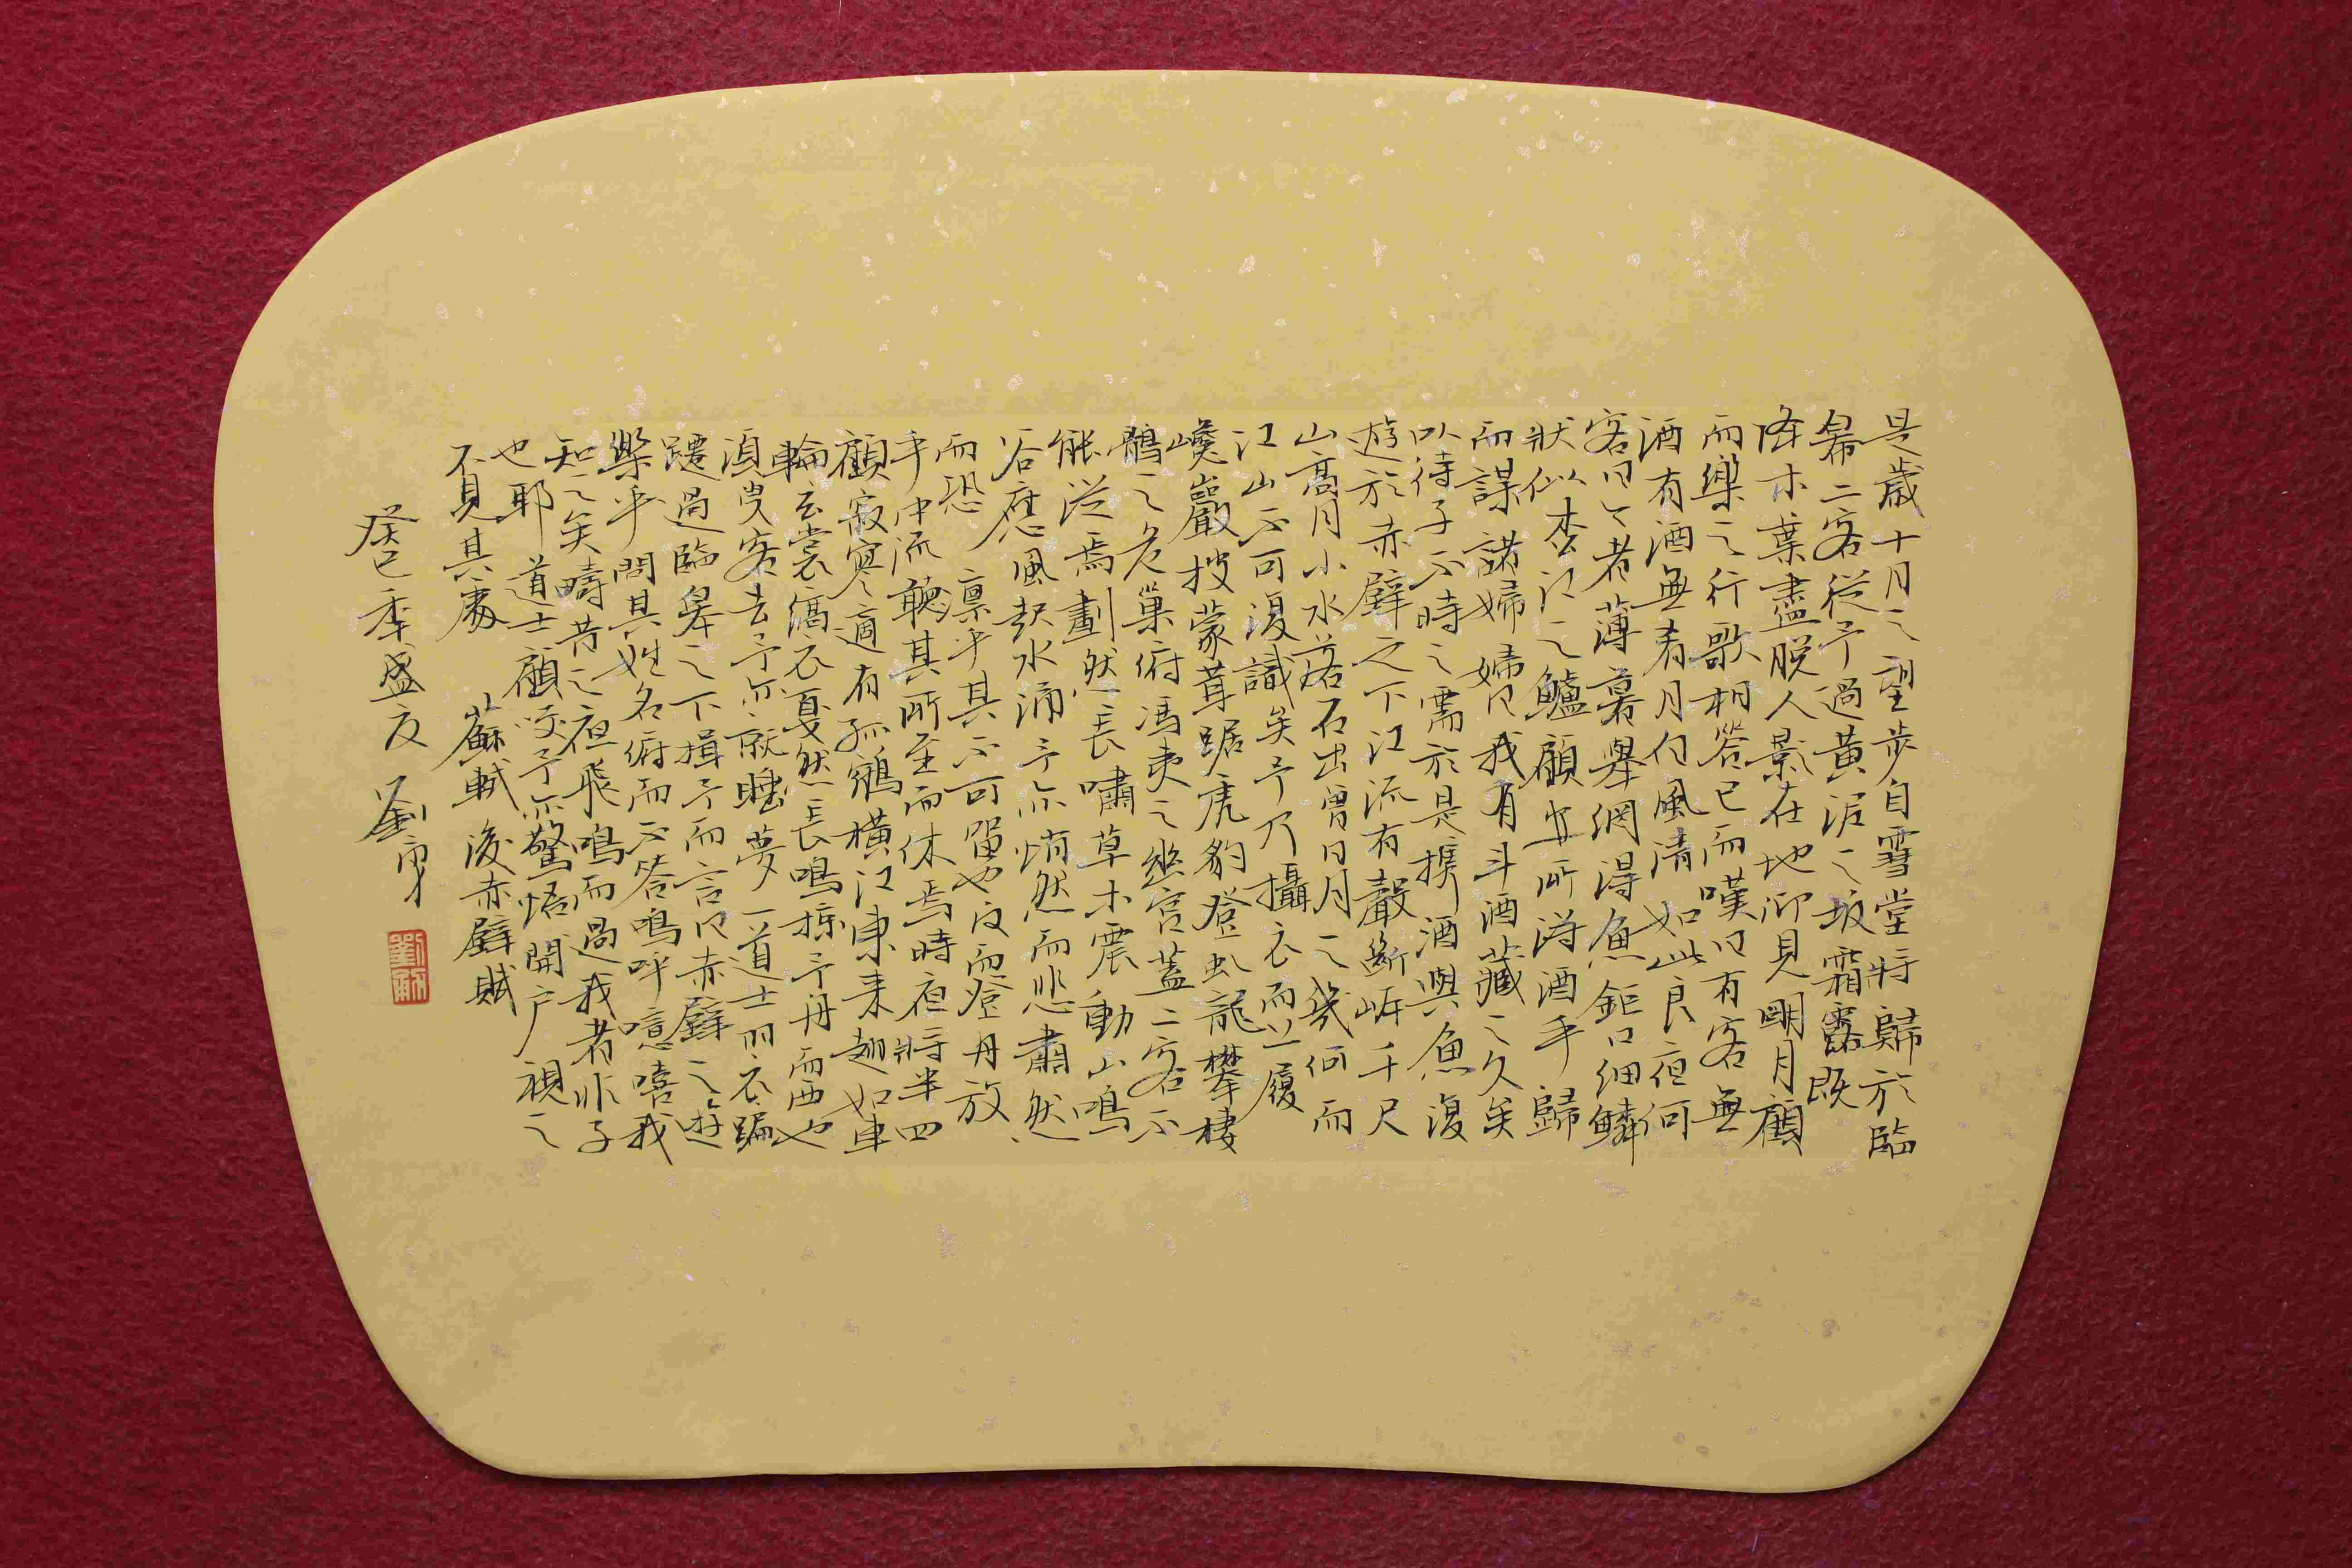 是歲十月之望步自雪堂將歸於臨
皋二客從予過黃泥之坂霜露既
降木葉盡脫人影在地仰見明月顧
而樂之行歌相答已而嘆曰有客無
酒有酒無肴月白風清如此良夜何
客曰今者薄暮舉網得魚鉅口細鱗
狀似松江之鱸顧安所得酒乎歸
而謀諸婦婦曰我有斗酒藏之久矣
以待子不時之需於是攜酒與魚復
遊於赤壁之下江流有聲斷岸千尺
山高月小水落石出曾日月之幾何而
江山不可復識矣予乃攝衣而上履
巉巖披蒙茸踞虎豹登虯龍攀棲
鶻之危巢俯馮夷之幽宮蓋二客不
能從焉劃然長嘯草木震動山鳴
谷應風起水涌予亦悄然而悲肅然
而恐凜乎其不可留也反而登舟放
乎中流聽其所至而休焉時夜將半四
顧寂寥適有孤鶴橫江東來翅如車
輪玄裳縞衣戛然長鳴掠予舟而西也
須臾客去予亦就睡夢一道士羽衣蹁
躚過臨皋之下揖予而言曰赤壁之遊
樂乎問其姓名俯而不答嗚呼噫嘻我
知之矣疇昔之夜飛鳴而過我者非子
也耶道士顧笑予亦驚悟開戶視之
不見其處 蘇軾後赤壁賦
癸巳年盛夏 劉勇